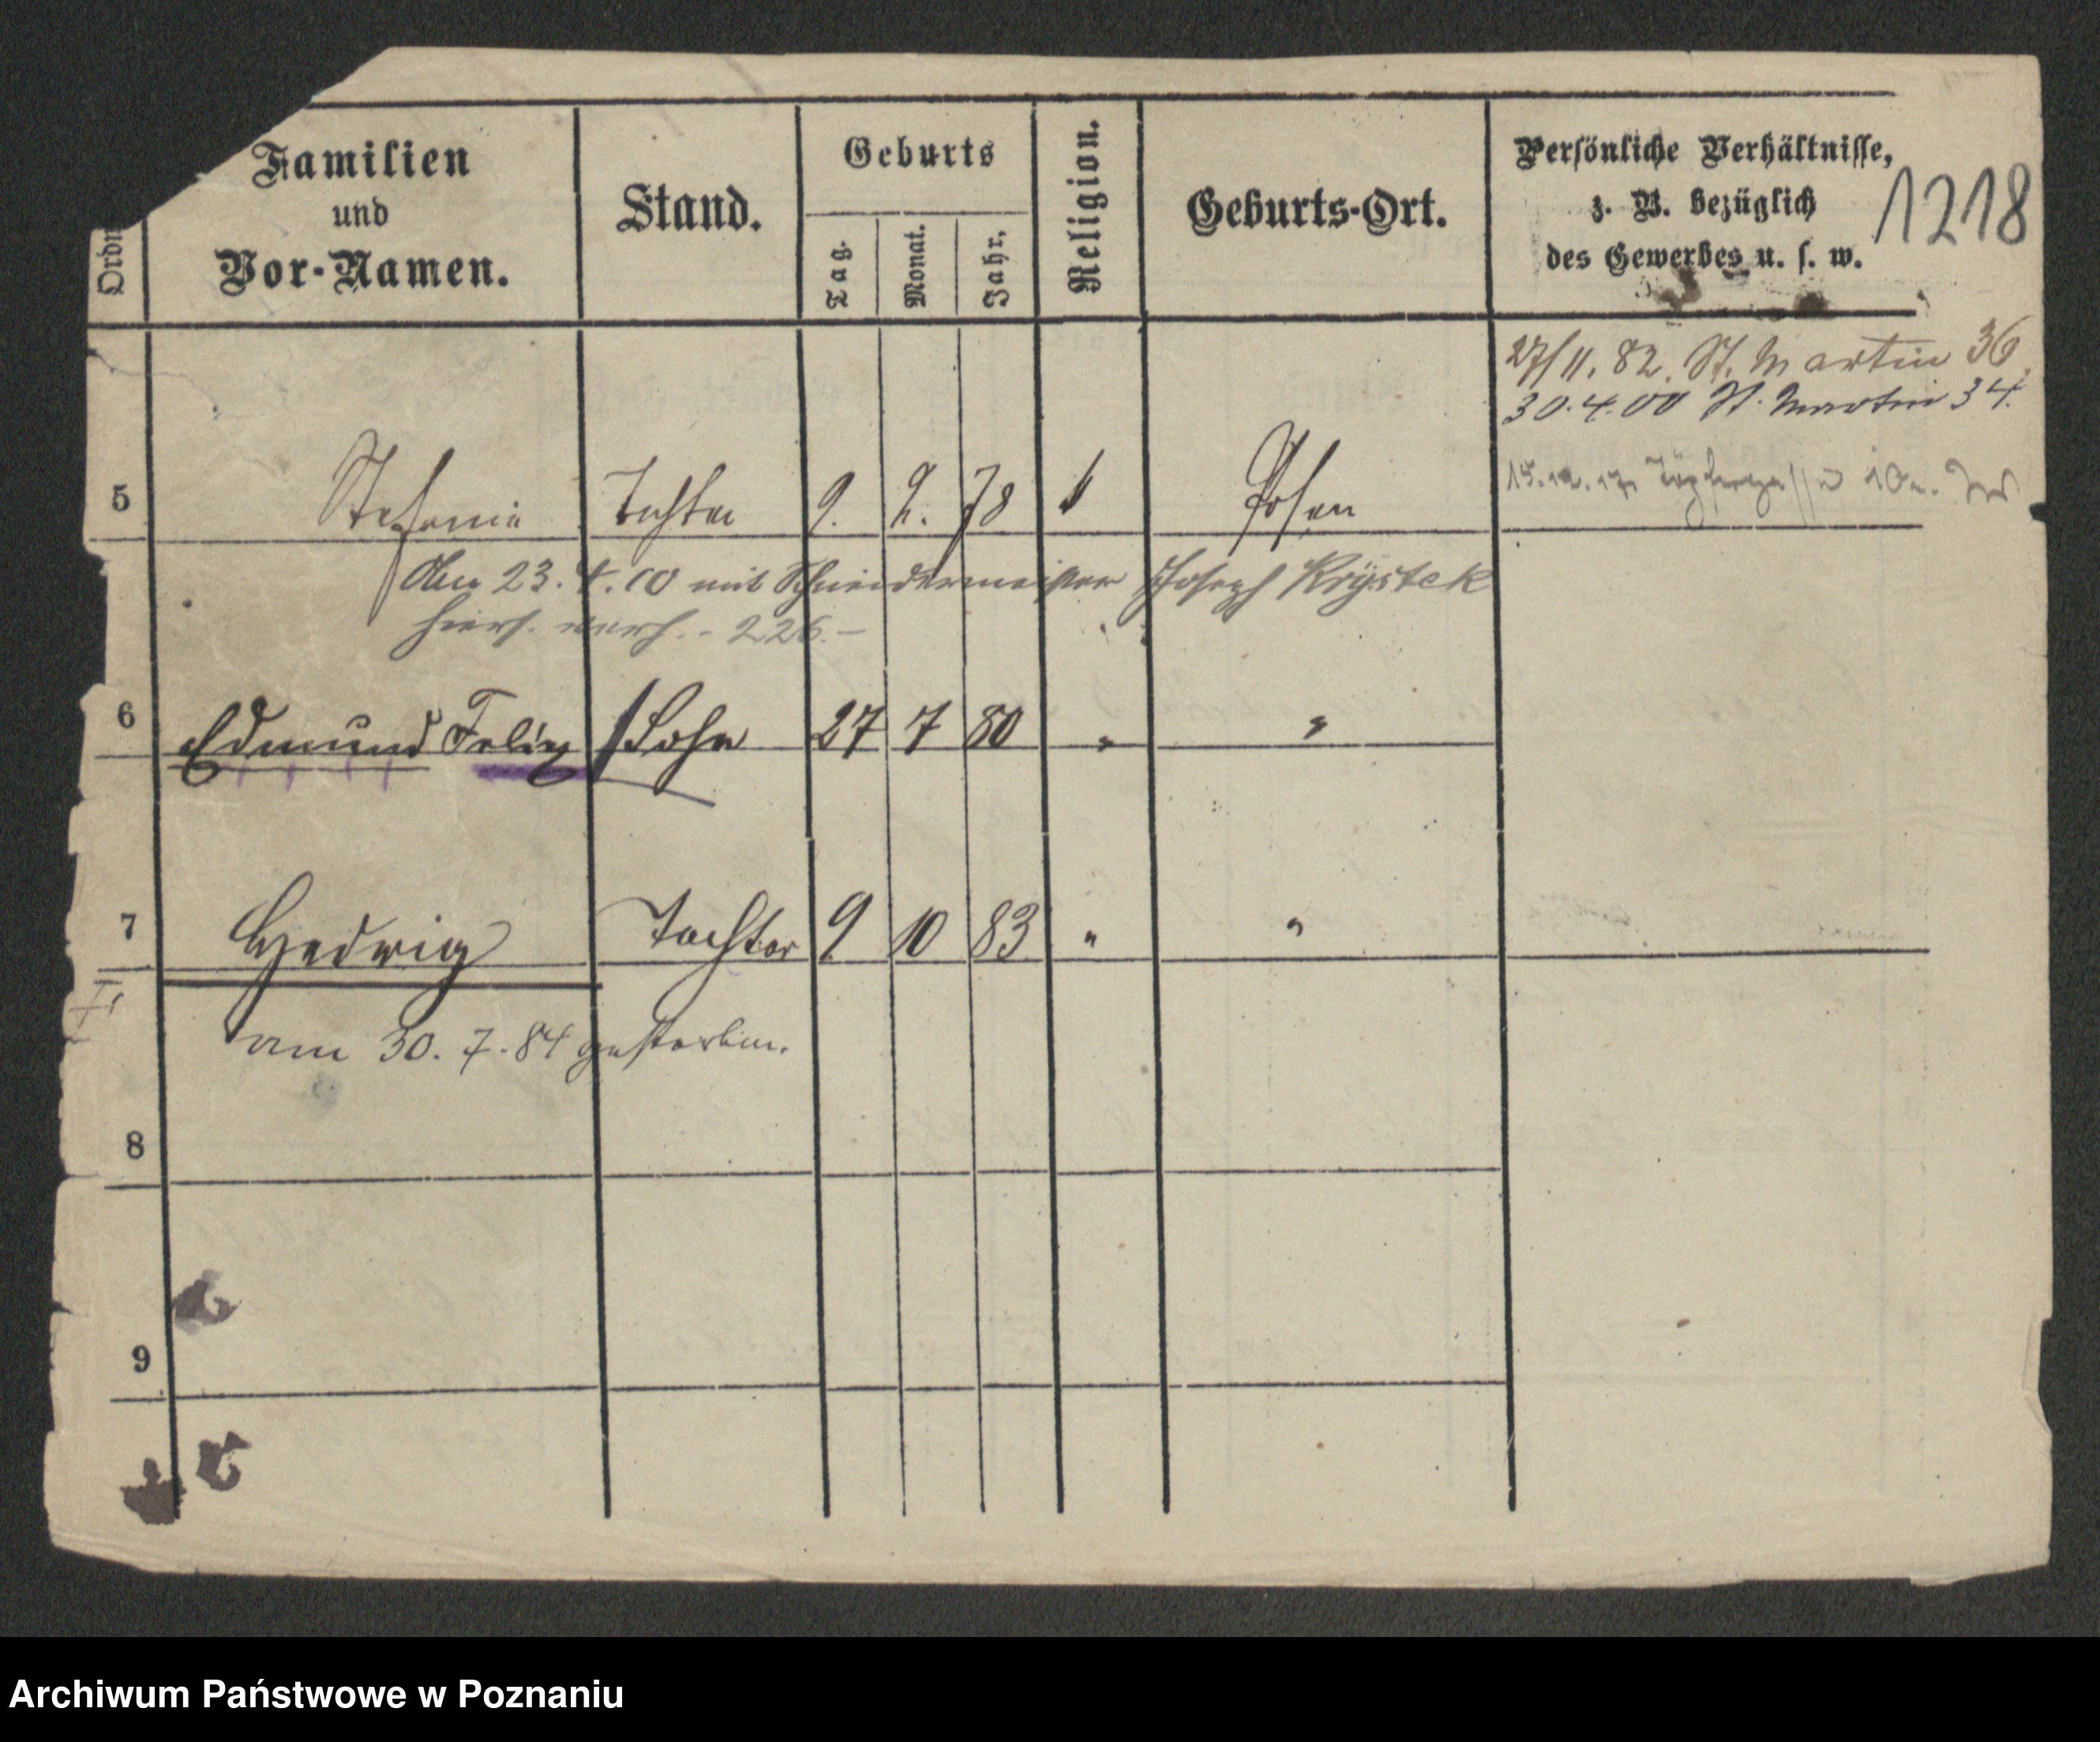 Familien
und
Vor-Namen.
Stand.
Geburts
Tag.
Monat.
Jahr.
Religion.
Geburts-Ort.
Persönliche Verhältnisse,
z. B. bezüglich
des Gewerbes u. s. w.
1218
27/11. 82. St. Martin 36
30.4.00 St. Martin 34.
5 Stefanie Tochter 9. 2. 78 Posen
15.12.17.
23. 4. 10 mit Schneidermeister Joseph Krystek
hiers. verh. - 226. -
6 Edmund Felix Sohn 27 7 80 " "
7 Hedwig Tochter 9 10 83 " "
am 30. 7. 84 gestorben.
8
9
Archiwum Państwowe w Poznaniu